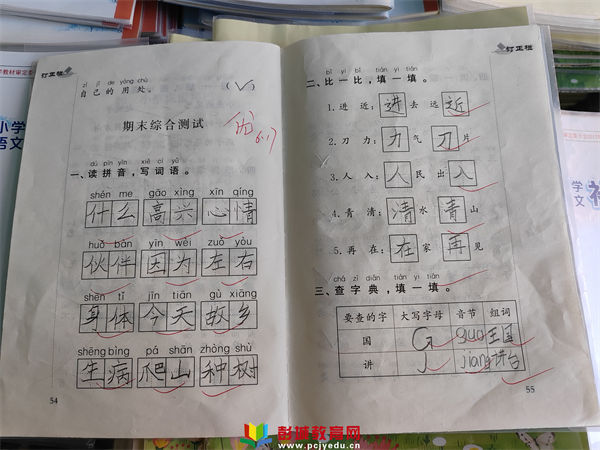 zì jǐ de yòng chù
自己的用处。 (√)
期末综合测试
优 6.17
一、读拼音,写词语。
dú pīn yīn xiě cí yǔ
shén me gāo xìng xīn qíng
什么 高兴 心情
huǒ bàn yīn wèi zuǒ yòu
伙伴 因为 左右
shēn tǐ jīn tiān gù xiāng
身体 今天 故乡
shēng bìng pá shān zhòng shù
生病 爬山 种树
54
订正栏
bǐ yì bǐ tián yì tián
二、比一比,填一填。
1.进 近:进去 远近
2.刀 力:力气 刀片
3.人 入:人民 出入
4.青 清:清水 青山
5.再 在:在家 再见
chá zì diǎn tián yì tián
三、查字典,填一填。
要查的字 大写字母 音节 组词
国 G guo 王国
讲 J jiang 讲台
55
订正栏
小学
语文
彭城教育网
www.pcjyedu.cn